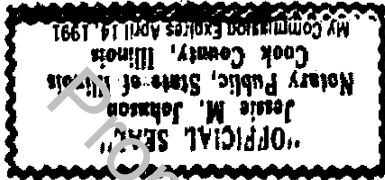 "OFFICIAL SEAL"
Jessie M. Johnson
Notary Public, State of Illinois
Cook County, Illinois
My Commission Expires April 14, 1991